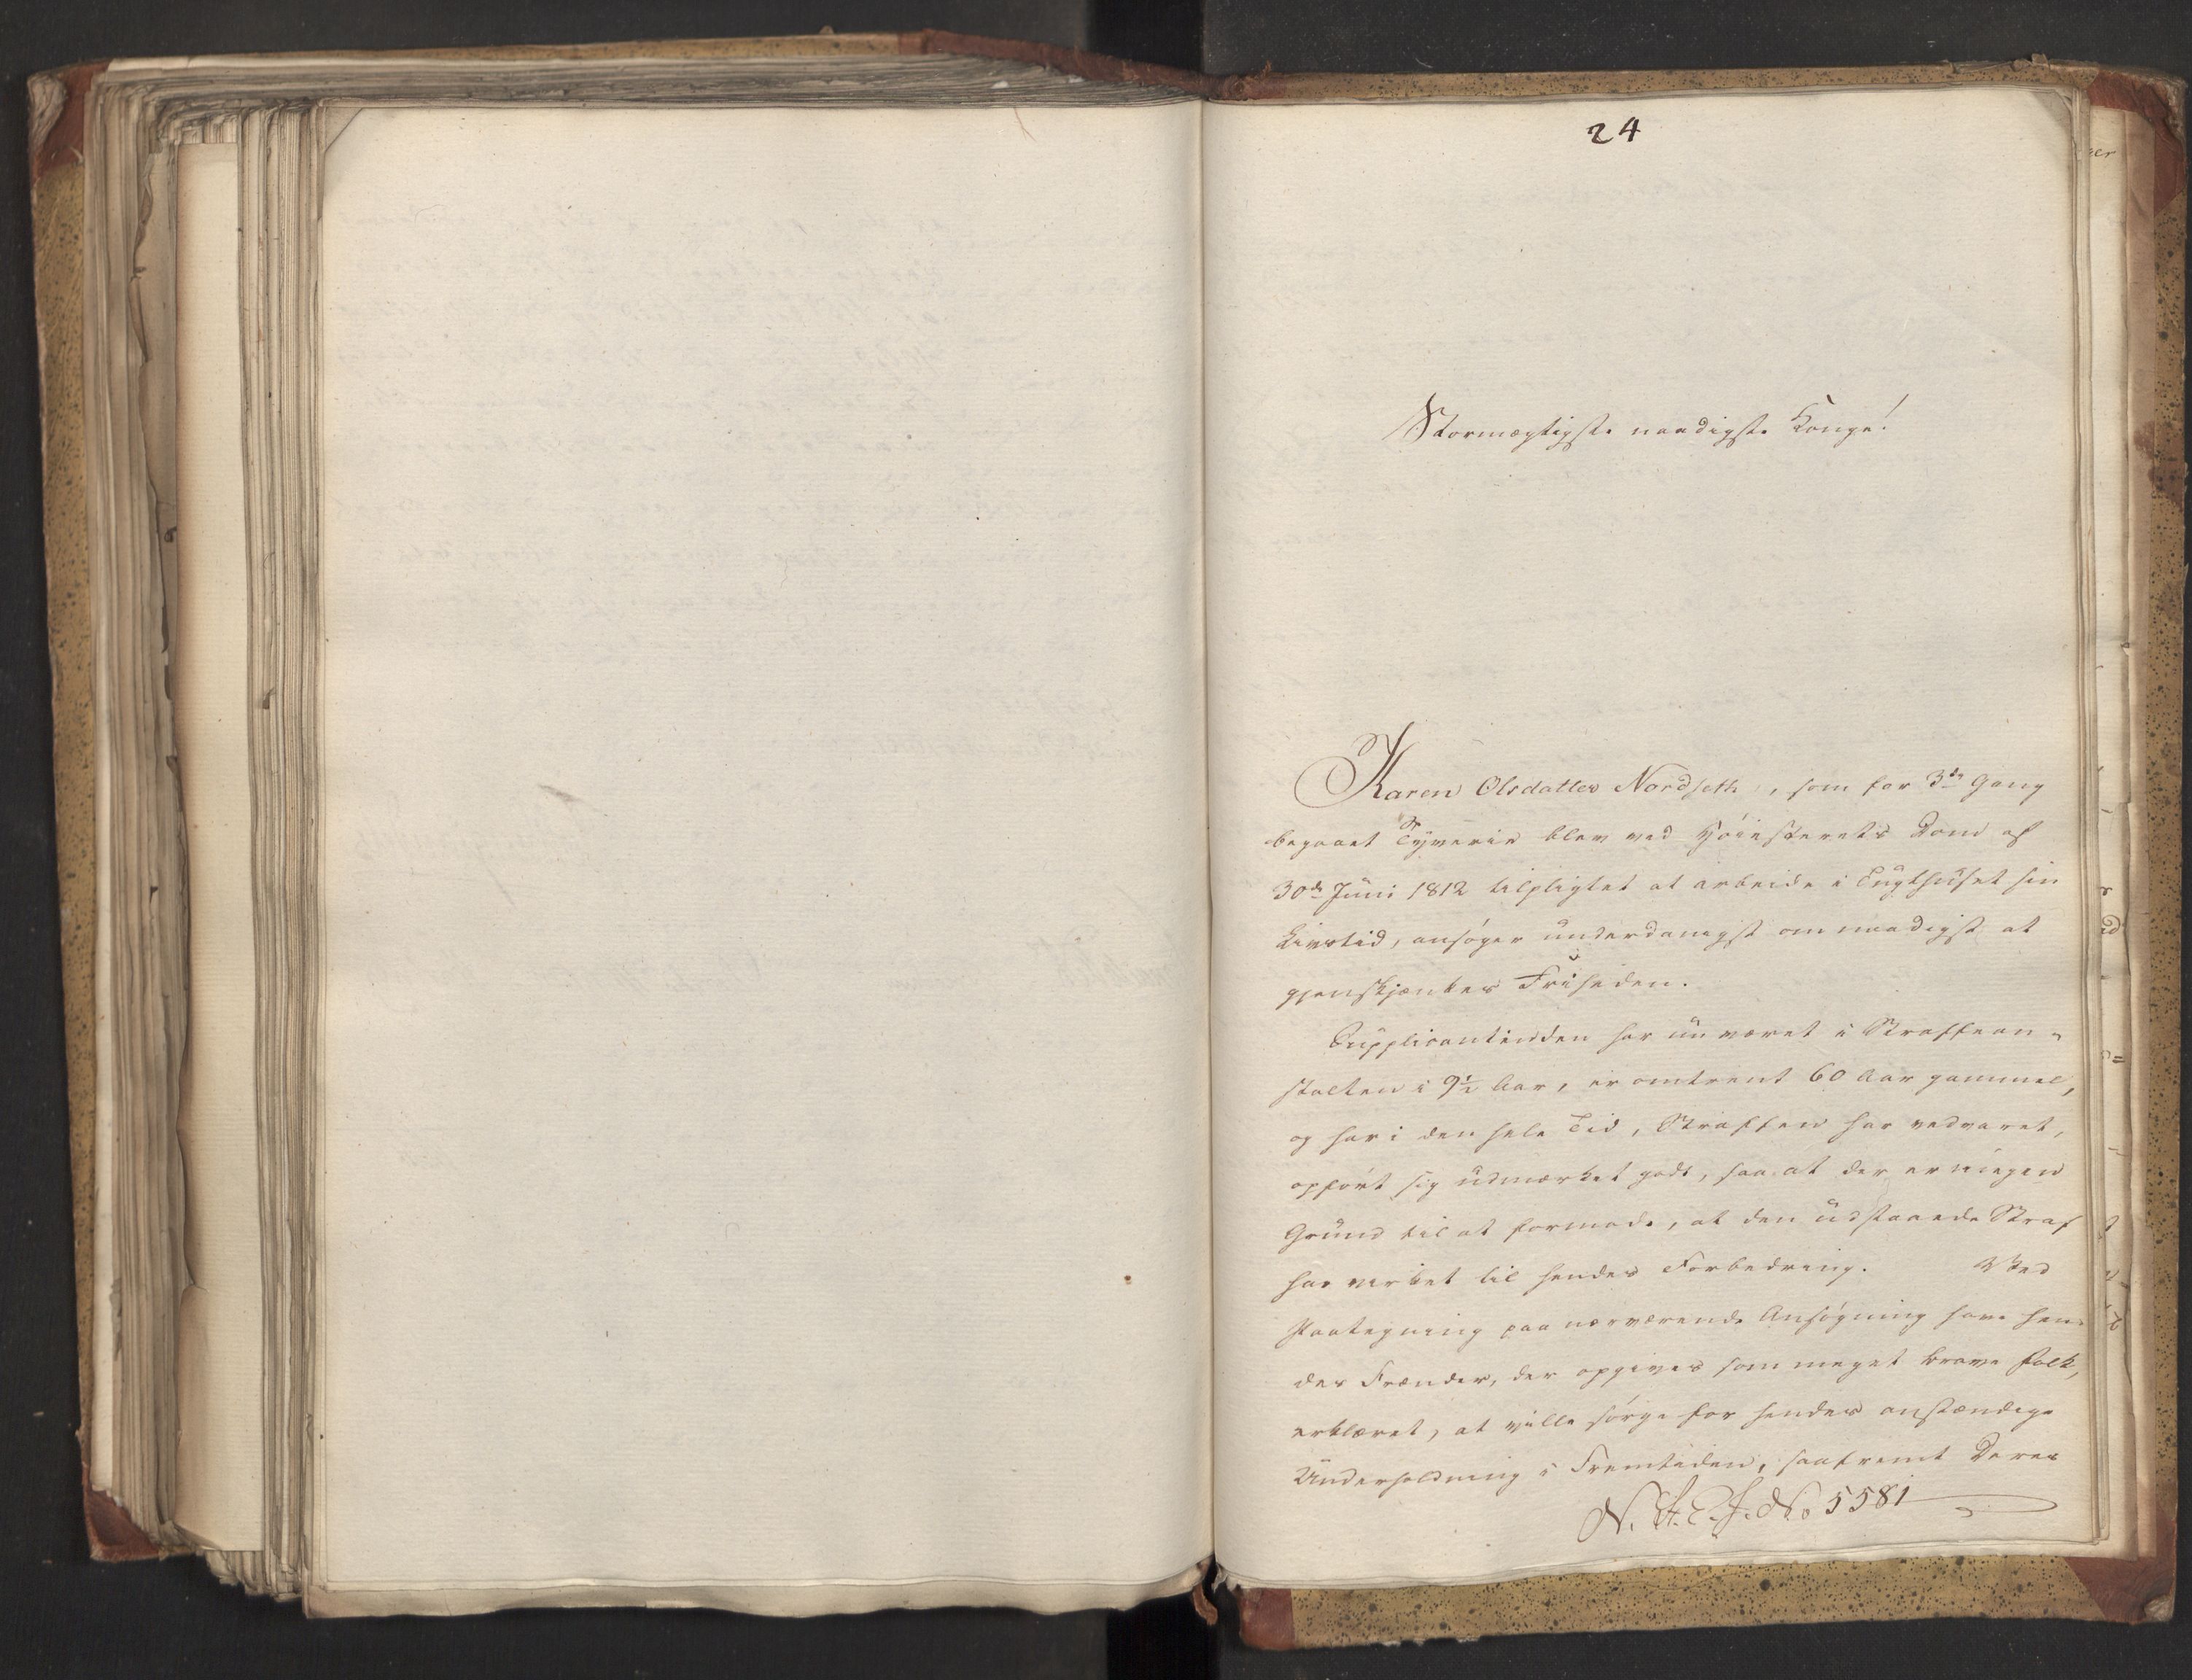 24
Stormægtigste naadigste Konge!
Karen Olsdatter Nordseth, som for 3de Gang
begaaet Tyverie blev ved Høiesterets Dom af
30de Juni 1812 tilpligtet at arbeide i Tugthuset sin
Livstid, ansøger underdanigst om naadigst at
gjenskjænkes Friheden.
Supplicantinden har nu været i Straffean-
stalten i 9½ Aar, er omtrent 60 Aar gammel,
og har i den hele Tid, Straffen har vedvaret,
opført sig udmærket godt, saa at der er
Grund til at formode, at den udstaaede Straf
har virket til hendes Forbedring. Ved
Paategning paa nærværende Ansøgning have hen-
des Frænder, der opgives som meget brave Folk,
erklæret, at ville sørge for hendes anstændige
Underholdning i Fremtiden, saafremt Deres
No 5581